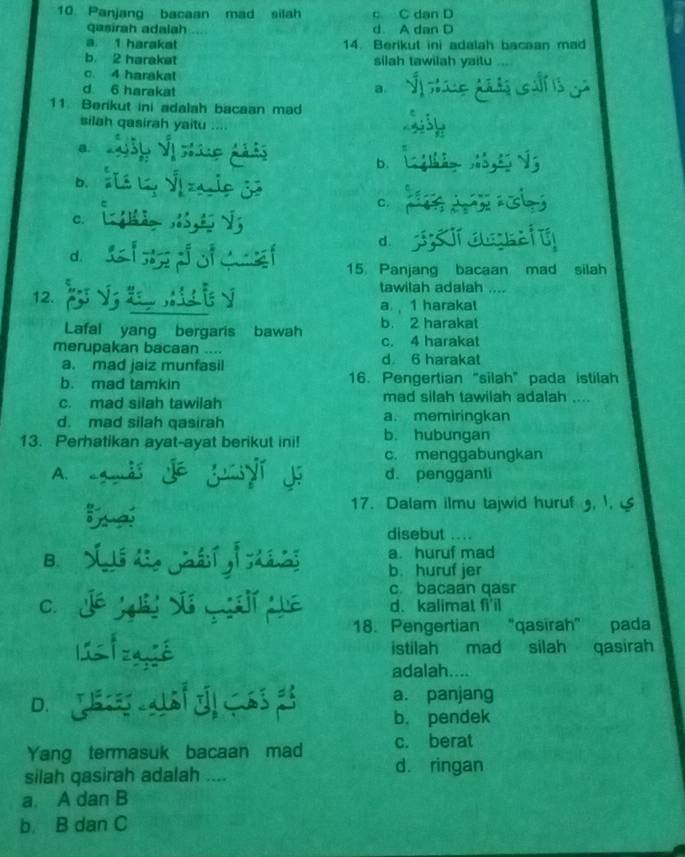 10. Panjang bacaan mad silah
qasirah adalah ....
a. 1 harakat
b. 2 harakat
c. 4 harakat
d. 6 harakat
11. Berikut ini adalah bacaan mad
silah qasirah yaitu ....
a. يَشْفَعُ عِنْدَهُٓ اِلَّا بِاِذْنِهٖ
b. مِّنْ عِلْمِهٖٓ اِلَّا بِمَا شَاۤءَ
c. وَلَا يَـُٔوْدُهٗ حِفْظُهُمَا
d. اَيَحْسَبُ اَنْ لَّمْ يَرَهٗٓ اَحَدٌ
12. لَا تَأْخُذُهٗ سِنَةٌ وَّلَا نَوْمٌ
Lafal yang bergaris bawah
merupakan bacaan ....
a. mad jaiz munfasil
b. mad tamkin
c. mad silah tawilah
d. mad silah qasirah
13. Perhatikan ayat-ayat berikut ini!
A. بَلِ الْاِنْسَانُ عَلٰى نَفْسِهٖ
بَصِيْرَةٌ
B. نِّصْفَهٗٓ اَوِ انْقُصْ مِنْهُ قَلِيْلًا
C. عٰلِمُ الْغَيْبِ فَلَا يُظْهِرُ عَلٰى
غَيْبِهٖٓ اَحَدًا
D. ثُمَّ ذَهَبَ اِلٰٓى اَهْلِهٖ يَتَمَطّٰى
Yang termasuk bacaan mad
silah qasirah adalah ....
a. A dan B
b. B dan C
c. C dan D
d. A dan D
14. Berikut ini adalah bacaan mad
silah tawilah yaitu ....
a. مَنْ ذَا الَّذِيْ يَشْفَعُ عِنْدَهٗٓ اِلَّا
بِاِذْنِهٖ
b. وَلَا يَـُٔوْدُهٗ حِفْظُهُمَا
c. وَجِايْۤءَ يَوْمَىِٕذٍ بِجَهَنَّمَ
d. اِنَّآ اَعْطَيْنٰكَ الْكَوْثَرَ
15. Panjang bacaan mad silah
tawilah adalah ....
a. 1 harakat
b. 2 harakat
c. 4 harakat
d. 6 harakat
16. Pengertian "silah" pada istilah
mad silah tawilah adalah ....
a. memiringkan
b. hubungan
c. menggabungkan
d. pengganti
17. Dalam ilmu tajwid huruf و, ا, ي
disebut ....
a. huruf mad
b. huruf jer
c. bacaan qasr
d. kalimat fi'il
18. Pengertian "qasirah" pada
istilah mad silah qasirah
adalah....
a. panjang
b. pendek
c. berat
d. ringan